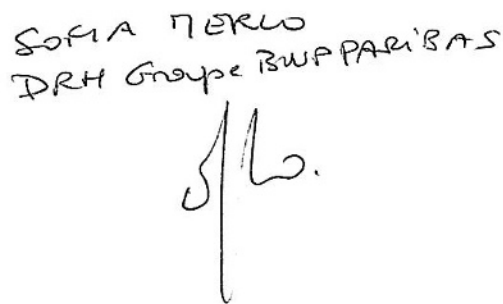 SOFIA MERLO
DRH Groupe BNP PARIBAS